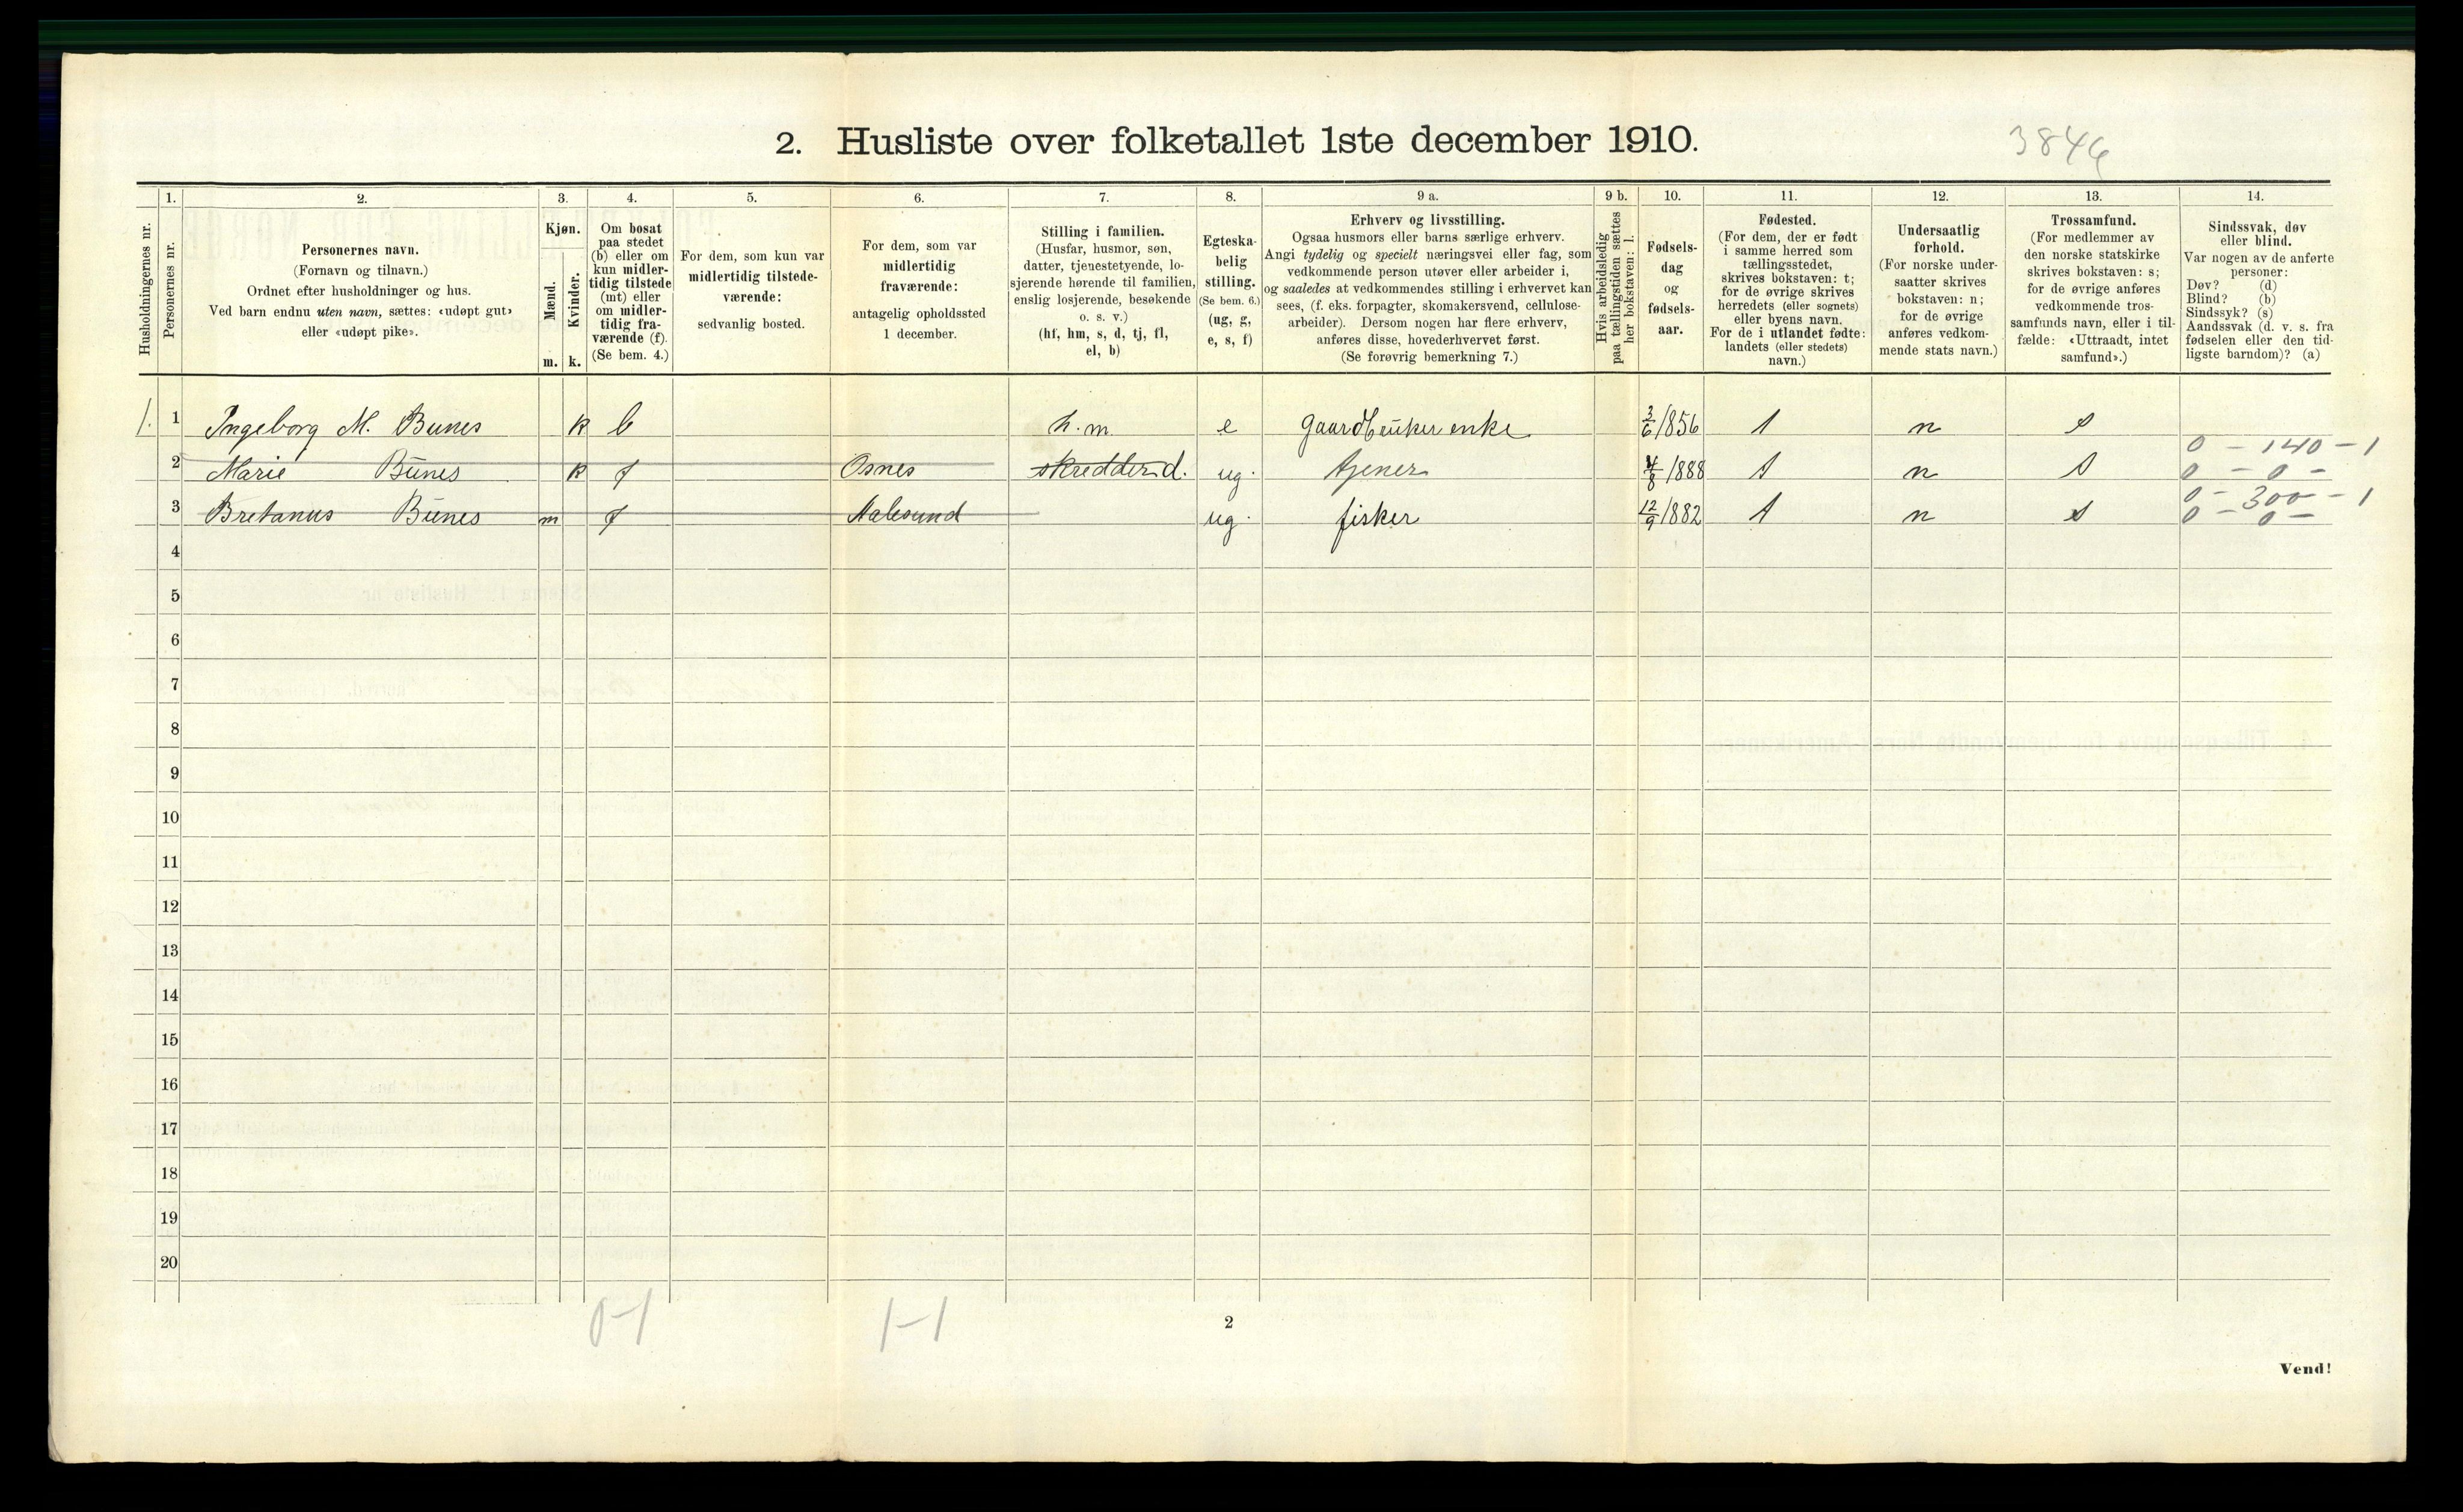 2. Husliste over folketallet 1ste december 1910.
3846
Husholdningernes nr.
1.
Personernes nr.
2.
Personernes navn.
(Fornavn og tilnavn.)
Ordnet efter husholdninger og hus.
Ved barn endnu uten navn, sættes: «udøpt gut»
eller «udøpt pike».
3.
Kjøn.
Mænd.
m.
Kvinder.
k.
4.
Om bosat
paa stedet
(b) eller om
kun midler-
tidig tilstede
(mt) eller
om midler-
tidig fra-
værende (f).
(Se bem. 4.)
5.
For dem, som kun var
midlertidig tilstede-
værende:
sedvanlig bosted.
6.
For dem, som var
midlertidig
fraværende:
antagelig opholdssted
1 december.
7.
Stilling i familien.
(Husfar, husmor, søn,
datter, tjenestetyende, lo-
sjerende hørende til familien,
enslig losjerende, besøkende
o. s. v.)
(hf, hm, s, d, tj, fl,
el, b)
8.
Egteska-
belig
stilling.
(Se bem. 6.)
(ug, g,
e, s, f)
9 a.
Erhverv og livsstilling.
Ogsaa husmors eller barns særlige erhverv.
Angi tydelig og specielt næringsvei eller fag, som
vedkommende person utøver eller arbeider i,
og saaledes at vedkommendes stilling i erhvervet kan
sees, (f. eks. forpagter, skomakersvend, cellulose-
arbeider). Dersom nogen har flere erhverv,
anføres disse, hovederhvervet først.
(Se forøvrig bemerkning 7.)
9 b.
Hvis arbeidsledig
paa tællingstiden sættes
her bokstaven: l.
10.
Fødsels-
dag
og
fødsels-
aar.
11.
Fødested.
(For dem, der er født
i samme herred som
tællingsstedet,
skrives bokstaven: t;
for de øvrige skrives
herredets (eller sognets)
eller byens navn.
For de i utlandet fødte:
landets (eller stedets)
navn.)
12.
Undersaatlig
forhold.
(For norske under-
saatter skrives
bokstaven: n;
for de øvrige
anføres vedkom-
mende stats navn.)
13.
Trossamfund.
(For medlemmer av
den norske statskirke
skrives bokstaven: s;
for de øvrige anføres
vedkommende tros-
samfunds navn, eller i til-
fælde: «Uttraadt, intet
samfund».)
14.
Sindssvak, døv
eller blind.
Var nogen av de anførte
personer:
Døv? (d)
Blind? (b)
Sindssyk? (s)
Aandssvak (d. v. s. fra
fødselen eller den tid-
ligste barndom)? (a)
1. 1 Ingeborg M. Bunes k b h.m. e gaardbruker enke 3/6 1856 t n s
0 - 140 - 1
2 Marie Bunes k f Osnes skredder d. ug. tjener 4/8 1888 t n s 0 - 0 -
0 - 300 - 1
3 Bretanus Bunes m f Aalesund ug. fisker 12/9 1882 t n s 0 - 0 -
4
5
6
7
8
9
10
11
12
13
14
15
16
17
18
19
20
0-1 1-1
2
Vend!